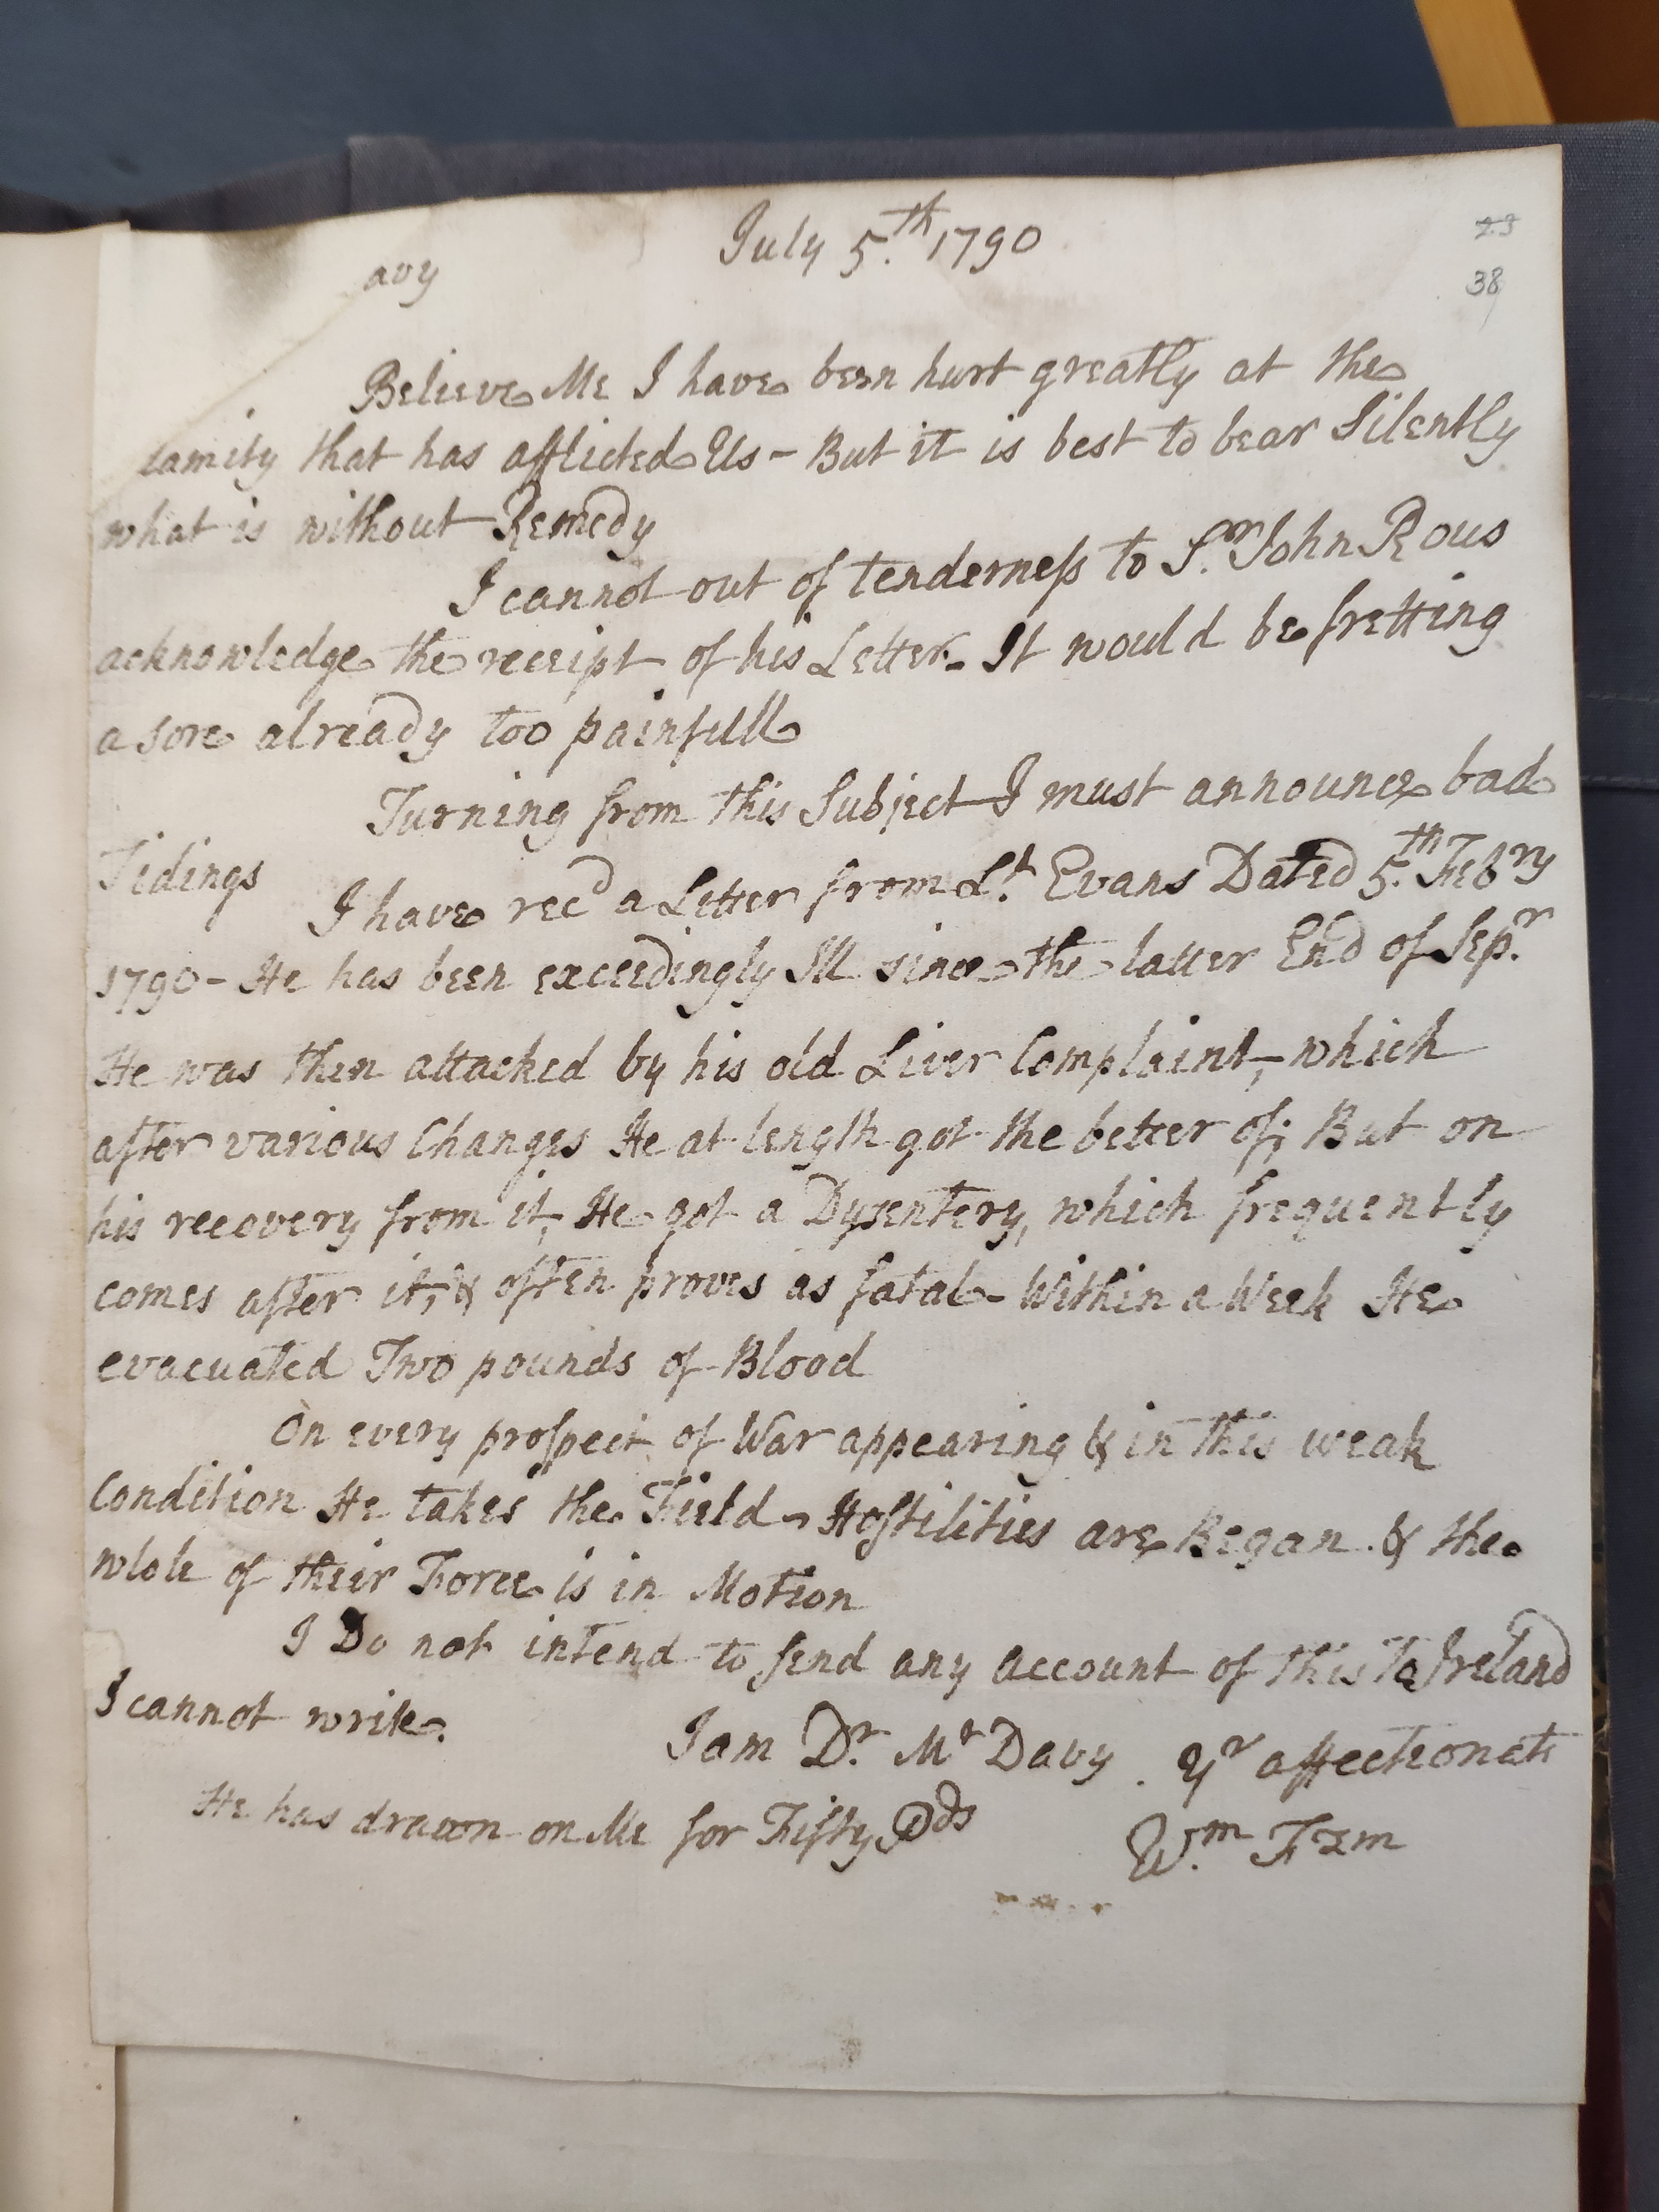 July 5.th 1790
23
avy
38
Believe Me I have been hurt greatly at the
lamity that has afflicted Us - But it is best to bear Silently
what is without Remedy
I cannot out of tenderness to Sr. John Rous
acknowledge the receipt of his Letter - It would be fretting
a sore already too painfull
Turning from this Subject I must announce bad
Tidings
I have recd a Letter from Lt. Evans Dated 5.th Febry
1790 - He has been exceedingly Ill since the latter End of Sepr.
He was then attacked by his old Liver Complaint, - which
after various Changes He at length got the better of; But on
his recovery from it, He got a Dysentery, which frequently
comes after it, & often proves as fatal - Within a Week He
evacuated Two pounds of Blood
On every prospect of War appearing & in this weak
Condition He takes the Field - Hostilities are Began & the
whole of their Force is in Motion
I Do not intend to send any account of this To Ireland
I cannot write.
I am Dr. Mr Davy . Yr affectionate
He has drawn on Me for Fifty Pds
Wm.